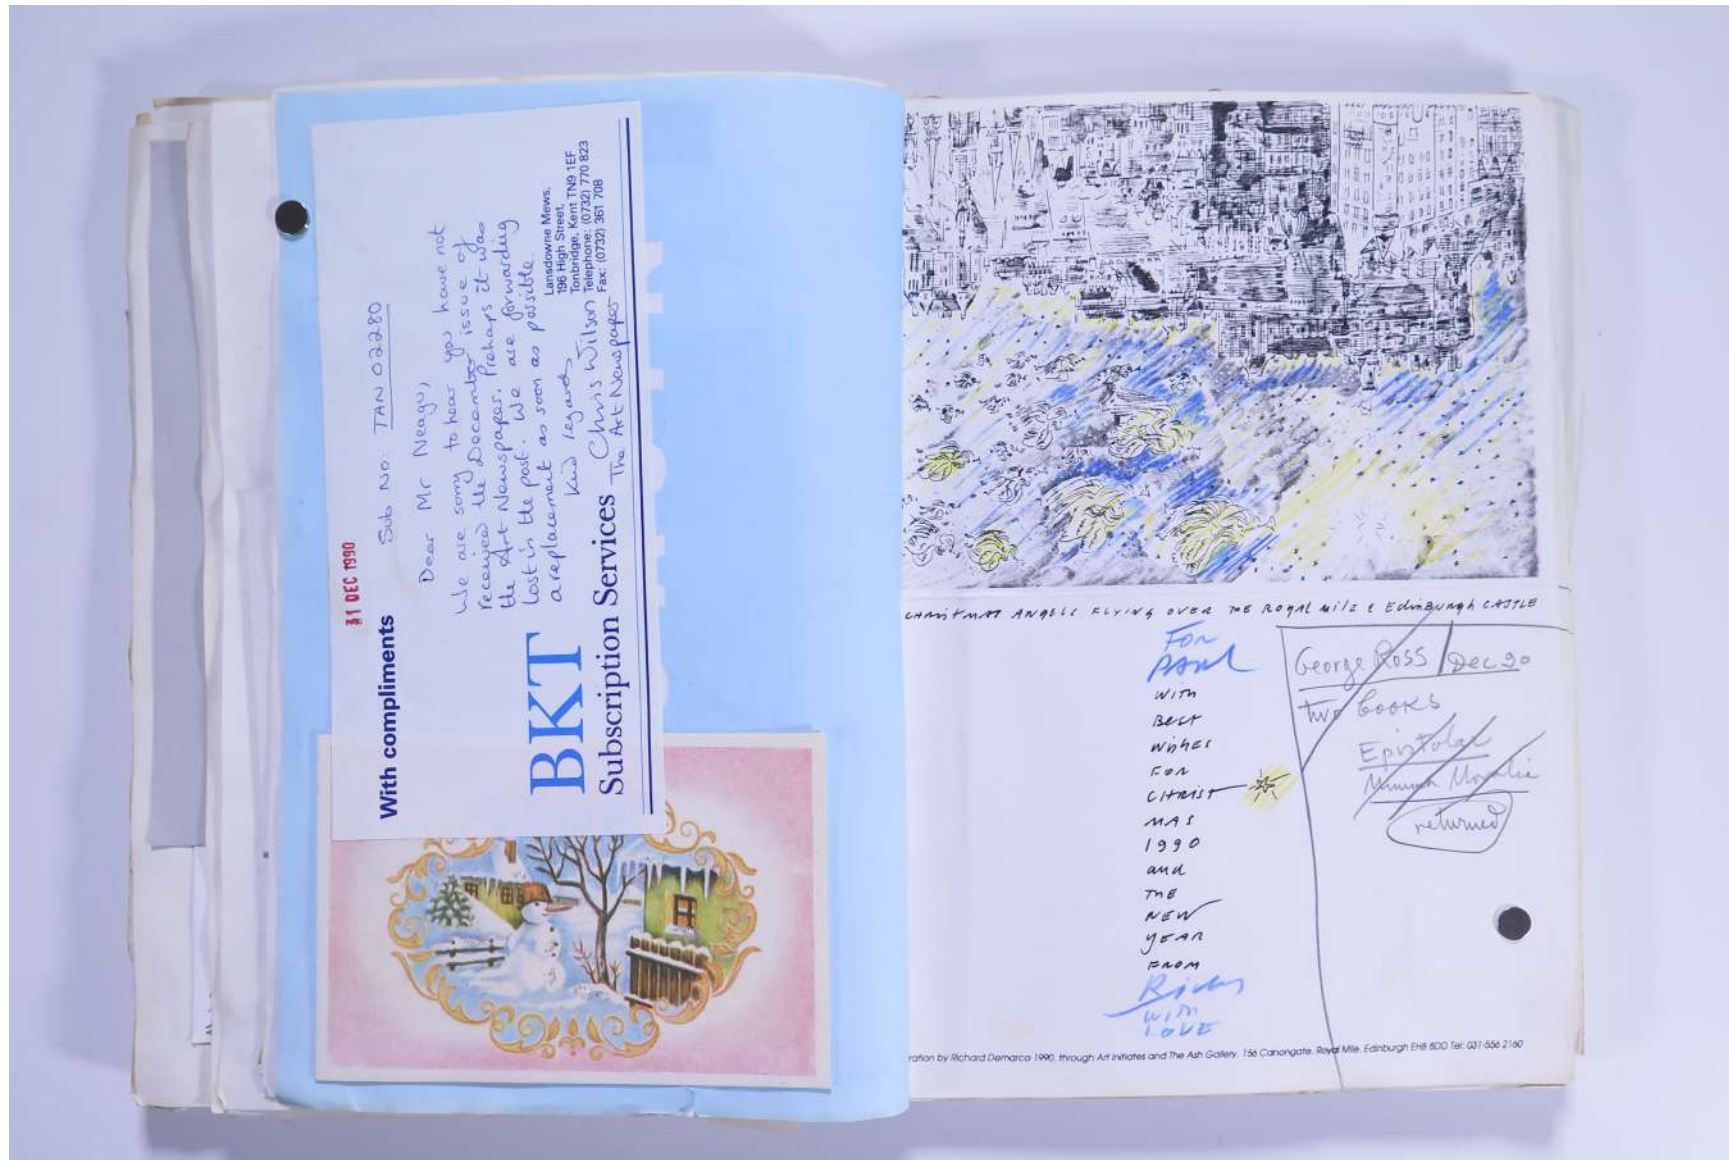 31 DEC 1990
With compliments
Sub No: TAN 02280
Dear Mr Neagu,
We are sorry to hear you have not
received the December issue of
the Art Newspaper. Prehaps it was
lost in the post. We are forwarding
a replacement as soon as possible.
Kind regards
Chris Wilson
The Art Newspaper
BKT
Subscription Services
Lansdowne Mews,
196 High Street,
Tonbridge, Kent TN9 1EF
Telephone: (0732) 770 823
Fax: (0732) 361 708
CHRISTMAS ANGELS FLYING OVER THE ROYAL MILE & EDINBURGH CASTLE
FOR
PAUL
WITH
BEST
WISHES
FOR
CHRIST
MAS
1990
and
THE
NEW
YEAR
FROM
Ricky
WITH
LOVE
George Ross / Dec 90
two books
Epistolar
Minima Moralia
returned
ration by Richard Demarco 1990, through Art Initiates and The Ash Gallery, 156 Canongate, Royal Mile, Edinburgh EH8 8DD Tel: 031-556 2160